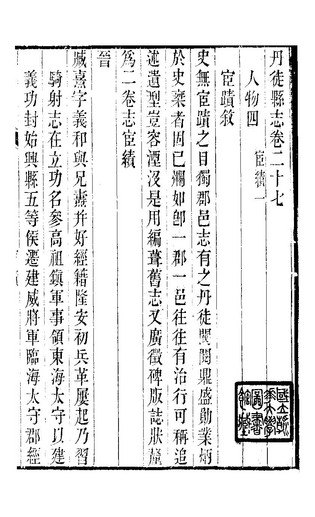 丹徒縣志卷二十七
人物四　宦績一
宦蹟敘
史無宦蹟之目獨郡邑志有之丹徒閥閱鼎盛勛業炳
於史稾者固已爛如卽一郡一邑往往有治行可稱追
述遺型豈容湮沒是用編葺舊志又廣徵碑版誌狀釐
爲二卷志宦績
晉
臧熹字義和與兄燾并好經籍隆安初兵革屢起乃習
騎射志在立功名參高祖鎮軍事領東海太守以建
義功封始興縣五等侯遷建威將軍臨海太守郡經